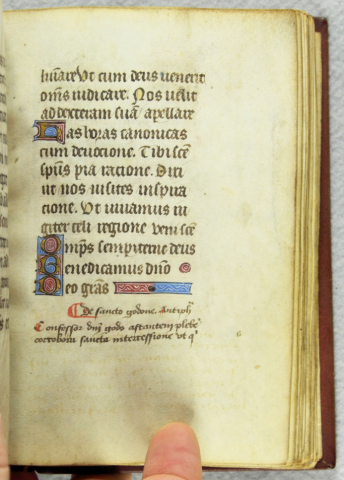 liuiare Ut cum deus uenerit
om̄s iudicare. Nos uelit
ad dexteram suā apellare
Has horas canonicas
cum deuocione. Tibi scē
spūs pia racione. Dixi
ut nos uisites inspira
cione. Ut uiuamus iu
giter celi regione Veni scē
Omp̄s sempiterne deus
Benedicamus dn̄o
Deo grās
De sancto godone. Antiph̄
Confessor dn̄j godo astantem plebē
corrobora sancta intercessione vt q